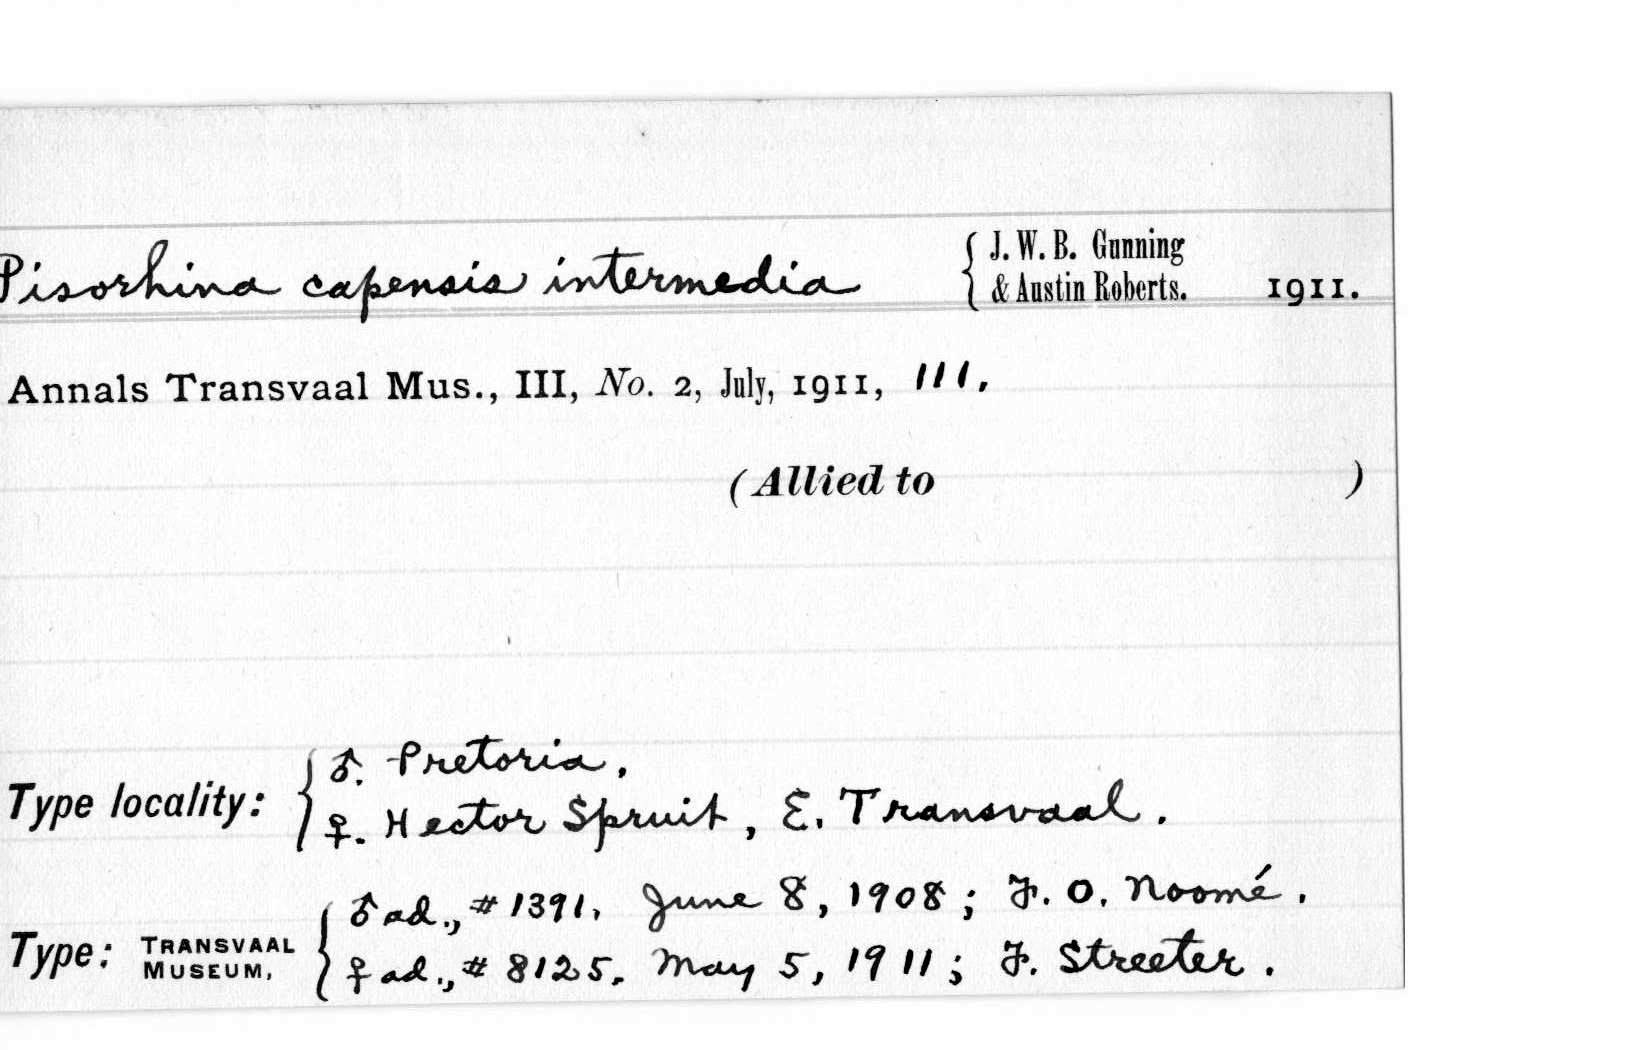 Pisorhina capensis intermedia { J. W. B. Gunning & Austin Roberts. 1911.
Annals Transvaal Mus., III, No. 2, July, 1911, 111.
(Allied to )
Type locality: { ♂. Pretoria.
♀. Hector Spruit, E. Transvaal.
Type: TRANSVAAL MUSEUM, { ♂ ad., # 1391. June 8, 1908; F. O. Noomé.
♀ ad., # 8125. May 5, 1911; F. Streeter.